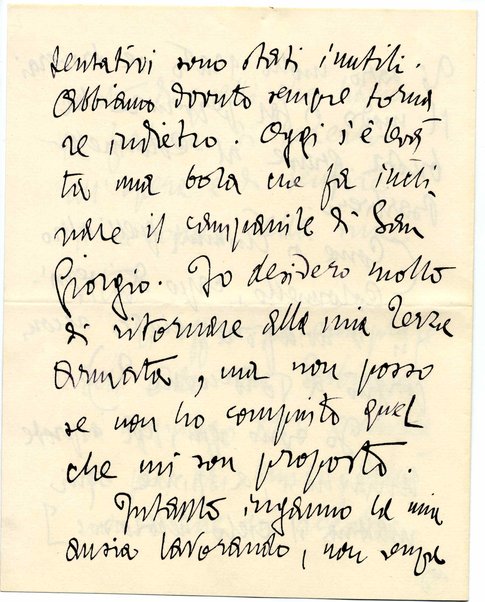 tentativi sono stati inutili.
Abbiamo dovuto sempre torna
re indietro. Oggi s'è leva
ta una bora che fa incli
nare il campanile di San
Giorgio. Io desidero molto
di ritornare alla mia Terza
Armata, ma non posso
se non ho compiuto quel
che mi son proposto.
Intanto inganno la mia
ansia lavorando, non senza